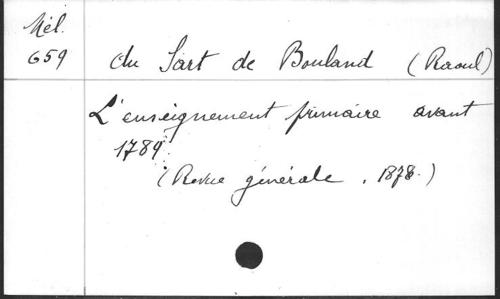 Mél.
659
du Sart de Bouland (Raoul)
L'enseignement primaire avant
1789.
(Revue générale, 1878.)